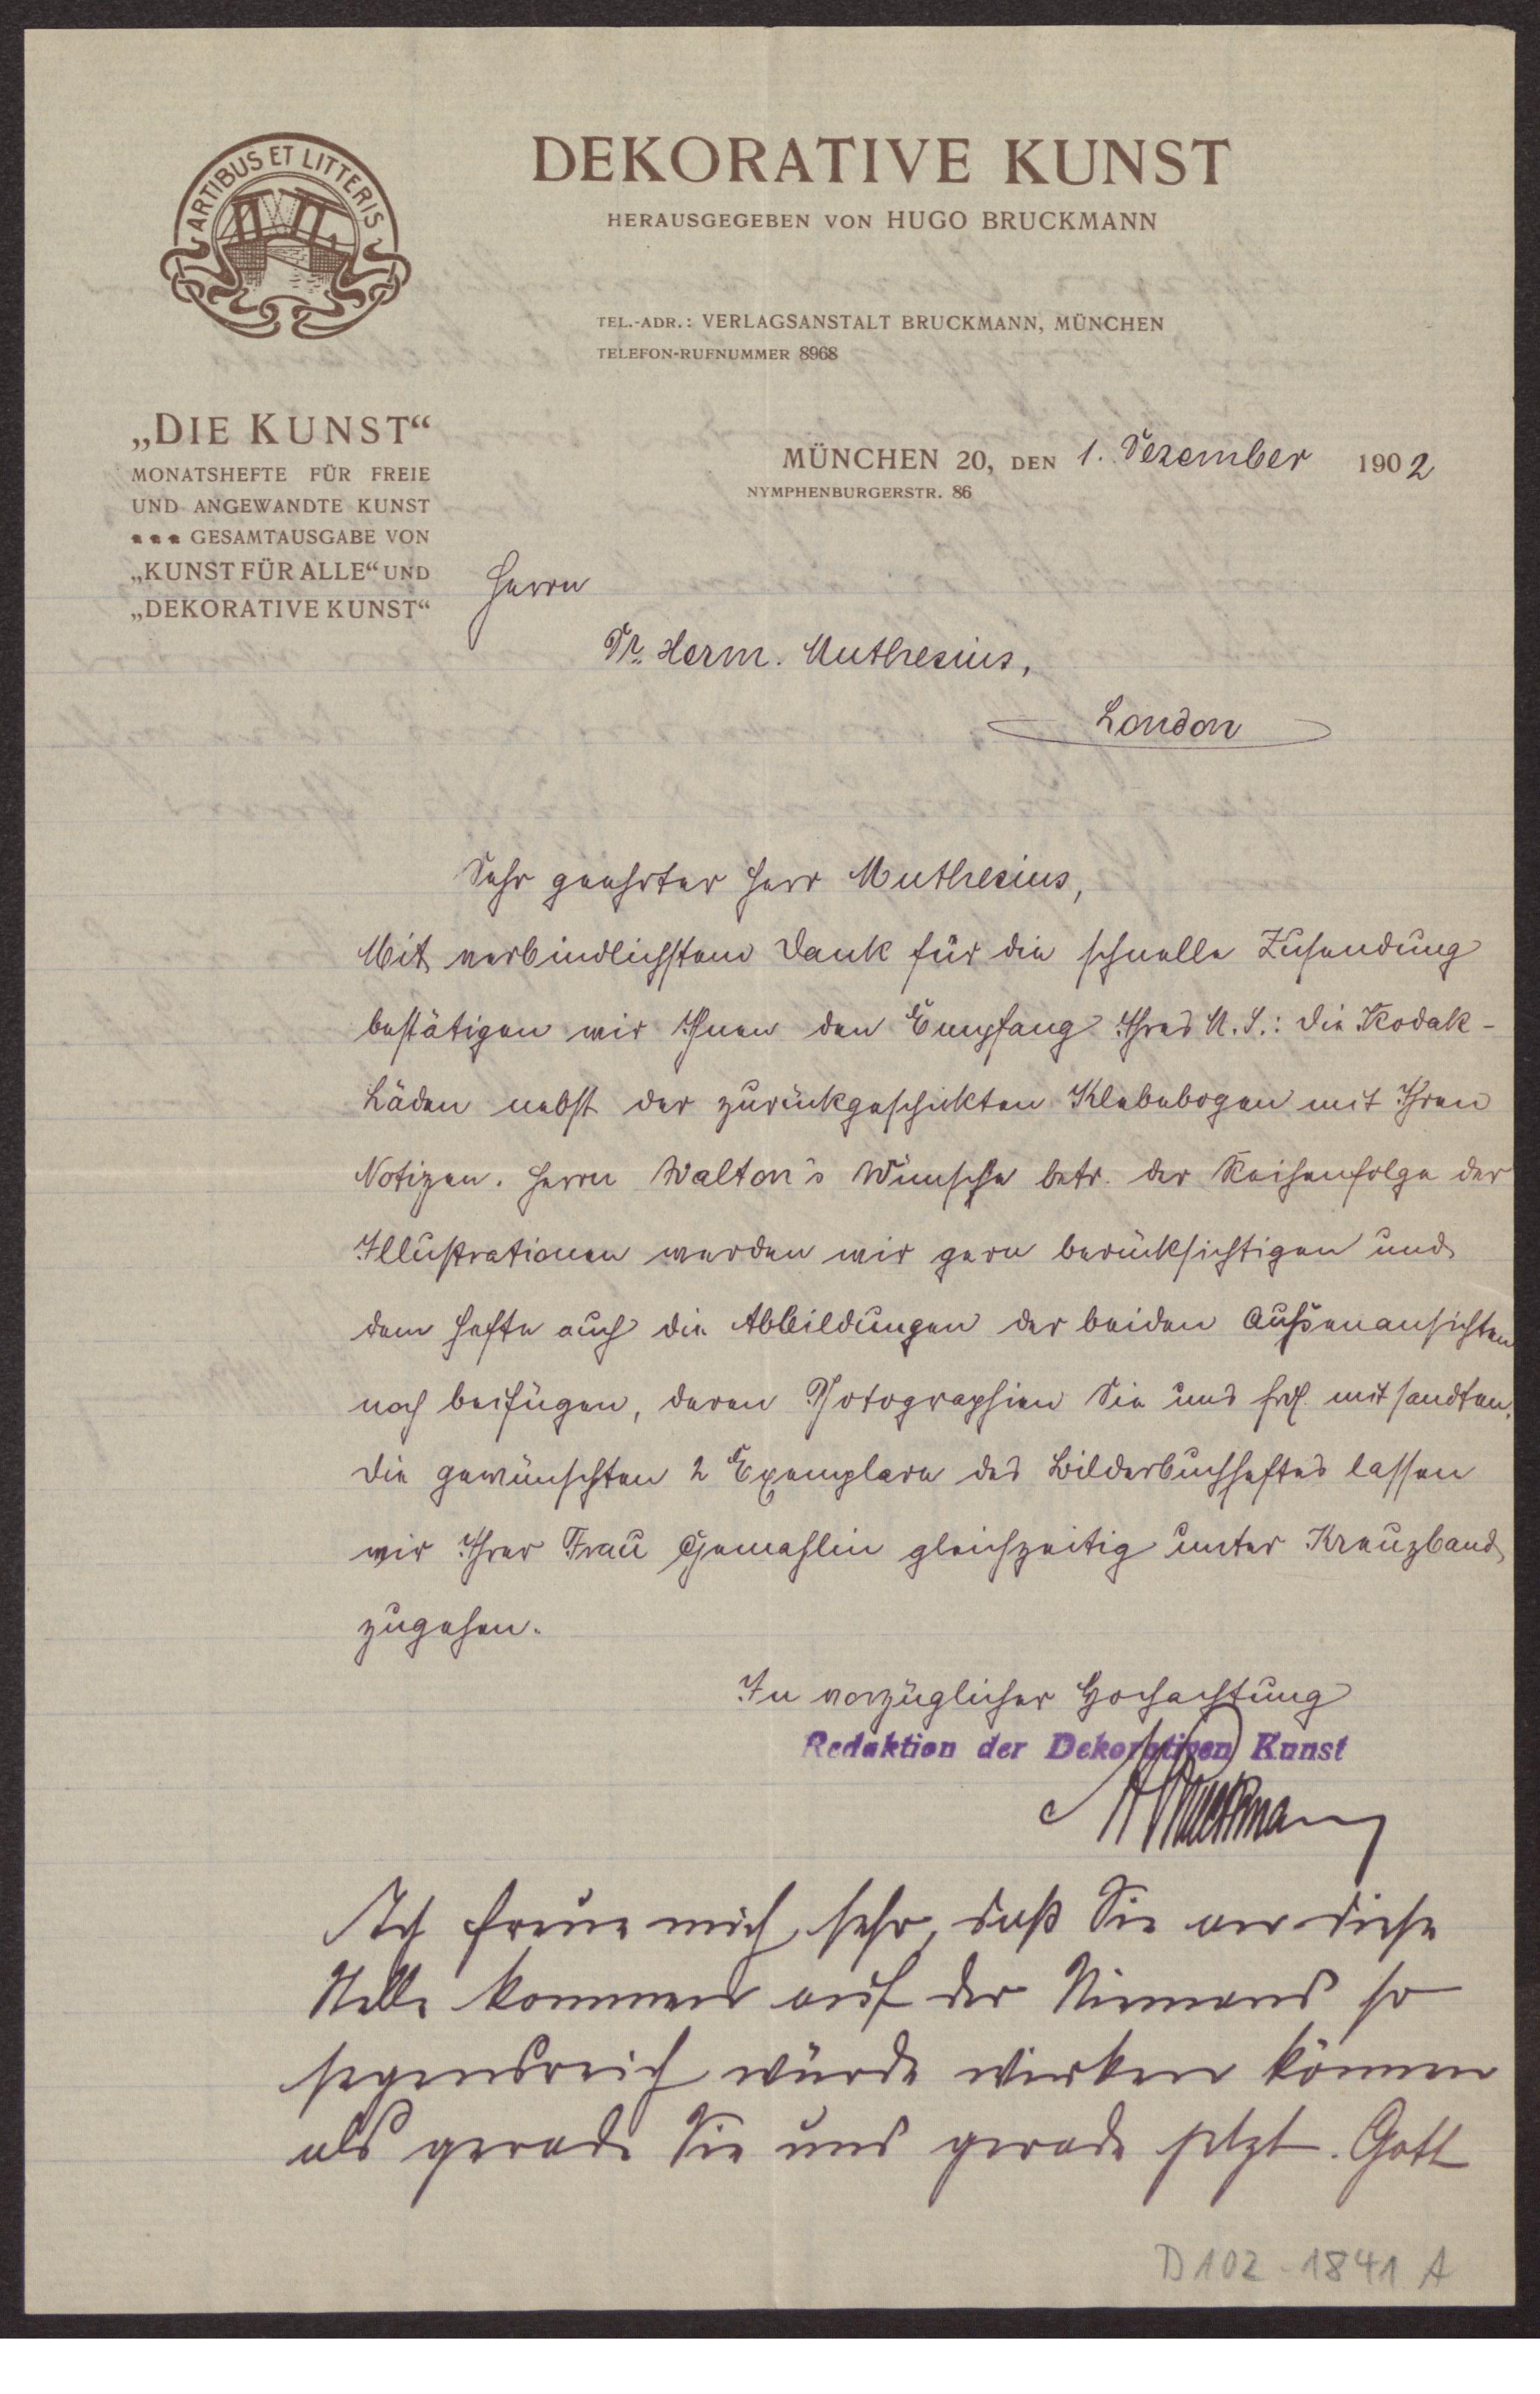 ARTIBUS ET LITTERIS
DEKORATIVE KUNST
HERAUSGEGEBEN VON HUGO BRUCKMANN
TEL.-ADR.: VERLAGSANSTALT BRUCKMANN, MÜNCHEN
TELEFON-RUFNUMMER 8968
„DIE KUNST“
MONATSHEFTE FÜR FREIE
UND ANGEWANDTE KUNST
GESAMTAUSGABE VON
„KUNST FÜR ALLE“ UND
„DEKORATIVE KUNST“
MÜNCHEN 20, DEN 1. Dezember 1902
NYMPHENBURGERSTR. 86
Herrn
Dr. Herm. Muthesius,
London
Sehr geehrter Herr Muthesius,
Mit verbindlichstem Dank für die schnelle Zusendung
bestätigen wir Ihnen den Empfang Ihres M. S.: Die Kodak-
Läden nebst der zurückgeschickten Klebebogen mit Ihren
Notizen. Herrn Walton's Wünsche betr. der Reihenfolge der
Illustrationen werden wir gern berücksichtigen und
dem Hefte auch die Abbildungen der beiden Außenansichten
noch beifügen, deren Photographien Sie uns frdl. mit sandten.
Die gewünschten 2 Exemplare des Bilderbuchheftes lassen
wir Ihrer Frau Gemahlin gleichzeitig unter Kreuzband
zugehen.
In vorzüglicher Hochachtung
Redaktion der Dekorativen Kunst
HBruckmann
Ich freue mich sehr, daß Sie an diese
Stelle kommen auf der Niemand so
segensreich würde wirken können
als gerade Sie und gerade jetzt. Gott
D102-1841 A